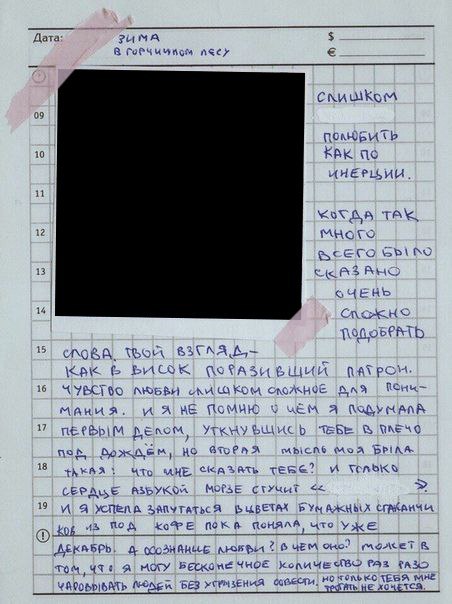 Дата: ЗИМА $
В ГОРЧИЧНОМ ЛЕСУ €
СЛИШКОМ
09
ПОЛЮБИТЬ
10 КАК ПО
ИНЕРЦИИ.
11
КОГДА ТАК
12 МНОГО
ВСЕГО БЫЛО
13 СКАЗАНО
ОЧЕНЬ
14 СЛОЖНО
ПОДОБРАТЬ
15 СЛОВА. ТВОЙ ВЗГЛЯД–
КАК В ВИСОК ПОРАЗИВШИЙ ПАТРОН.
16 ЧУВСТВО ЛЮБВИ СЛИШКОМ СЛОЖНОЕ ДЛЯ ПОНИ-
МАНИЯ. И Я НЕ ПОМНЮ О ЧЁМ Я ПОДУМАЛА
17 ПЕРВЫМ ДЕЛОМ, УТКНУВШИСЬ ТЕБЕ В ПЛЕЧО
ПОД ДОЖДЁМ, НО ВТОРАЯ МЫСЛЬ МОЯ БЫЛА
18 ТАКАЯ: ЧТО МНЕ СКАЗАТЬ ТЕБЕ? И ТОЛЬКО
СЕРДЦЕ АЗБУКОЙ МОРЗЕ СТУЧИТ « ».
19 И Я УСПЕЛА ЗАПУТАТЬСЯ В ЦВЕТАХ БУМАЖНЫХ СТАКАНЧИ
КОВ ИЗ ПОД КОФЕ ПОКА ПОНЯЛА, ЧТО УЖЕ
ДЕКАБРЬ. А ОСОЗНАНИЕ ЛЮБВИ? В ЧЕМ ОНО? МОЖЕТ В
ТОМ, ЧТО Я МОГУ БЕСКОНЕЧНОЕ КОЛИЧЕСТВО РАЗ РАЗО
ЧАРОВЫВАТЬ ЛЮДЕЙ БЕЗ УГРЫЗЕНИЯ СОВЕСТИ. НО ТОЛЬКО ТЕБЯ МНЕ
ТРОГАТЬ НЕ ХОЧЕТСЯ.